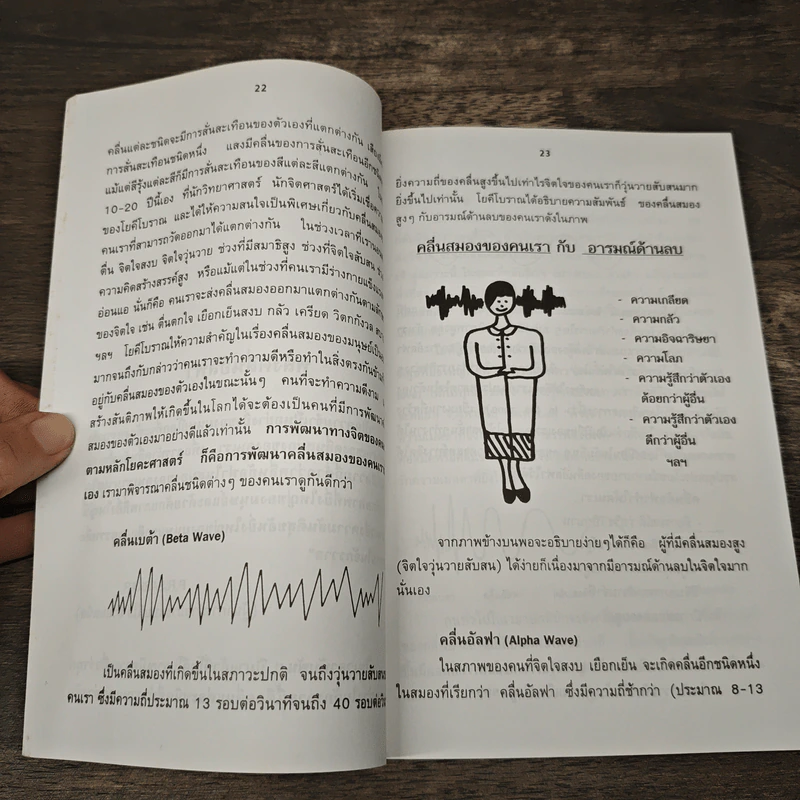 22
คลื่นแต่ละชนิดจะมีการสั่นสะเทือนของตัวเองที่แตกต่างกัน
การสั่นสะเทือนชนิดหนึ่ง แสงมีคลื่นของการสั่นสะเทือนอีก
แม้แต่สีรุ้งแต่ละสีก็มีการสั่นสะเทือนของสีแต่ละสีแตกต่างกัน
10-20 ปีนี้เอง ที่นักวิทยาศาสตร์ นักจิตศาสตร์ได้เริ่มเชื่อ
ของโยคีโบราณ และได้ให้ความสนใจเป็นพิเศษเกี่ยวกับคลื่น
คนเราที่สามารถวัดออกมาได้แตกต่างกัน ในช่วงเวลาที่เรา
ตื่น จิตใจสงบ จิตใจวุ่นวาย ช่วงที่มีสมาธิสูง ช่วงที่จิตใจสับสน
ความคิดสร้างสรรค์สูง หรือแม้แต่ในช่วงที่คนเรามีร่างกายแข็ง
อ่อนแอ นั่นก็คือ คนเราจะส่งคลื่นสมองออกมาแตกต่างกันตาม
ของจิตใจ เช่น ตื่นตกใจ เยือกเย็นสงบ กลัว เครียด วิตกกังวล
ฯลฯ โยคีโบราณให้ความสำคัญในเรื่องคลื่นสมองของมนุษย์เป็น
มากจนถึงกับกล่าวว่าคนเราจะทำความดีหรือทำในสิ่งตรงกันข้าม
อยู่กับคลื่นสมองของตัวเองในขณะนั้นๆ คนที่จะทำความดีงาม
สร้างสันติภาพให้เกิดขึ้นในโลกได้จะต้องเป็นคนที่มีการพัฒนา
สมองของตัวเองมาอย่างดีแล้วเท่านั้น การพัฒนาทางจิตของคน
ตามหลักโยคะศาสตร์ ก็คือการพัฒนาคลื่นสมองของคนเรา
เอง เรามาพิจารณาคลื่นชนิดต่างๆ ของคนเราดูกันดีกว่า
คลื่นเบต้า (Beta Wave)
เป็นคลื่นสมองที่เกิดขึ้นในสภาวะปกติ จนถึงวุ่นวายสับสน
คนเรา ซึ่งมีความถี่ประมาณ 13 รอบต่อวินาทีจนถึง 40 รอบต่อ
23
ยิ่งความถี่ของคลื่นสูงขึ้นไปเท่าไรจิตใจของคนเราก็วุ่นวายสับสนมาก
ยิ่งขึ้นไปเท่านั้น โยคีโบราณได้อธิบายความสัมพันธ์ ของคลื่นสมอง
สูงๆ กับอารมณ์ด้านลบของคนเราดังในภาพ
คลื่นสมองของคนเรา กับ อารมณ์ด้านลบ
- ความเกลียด
- ความกลัว
- ความอิจฉาริษยา
- ความโลภ
- ความรู้สึกว่าตัวเอง
ด้อยกว่าผู้อื่น
- ความรู้สึกว่าตัวเอง
ดีกว่าผู้อื่น
ฯลฯ
จากภาพข้างบนพอจะอธิบายง่ายๆได้ก็คือ ผู้ที่มีคลื่นสมองสูง
(จิตใจวุ่นวายสับสน) ได้ง่ายก็เนื่องมาจากมีอารมณ์ด้านลบในจิตใจมาก
นั้นเอง
คลื่นอัลฟา (Alpha Wave)
ในสภาพของคนที่จิตใจสงบ เยือกเย็น จะเกิดคลื่นอีกชนิดหนึ่ง
ในสมองที่เรียกว่า คลื่นอัลฟา ซึ่งมีความถี่ช้ากว่า (ประมาณ 8-13